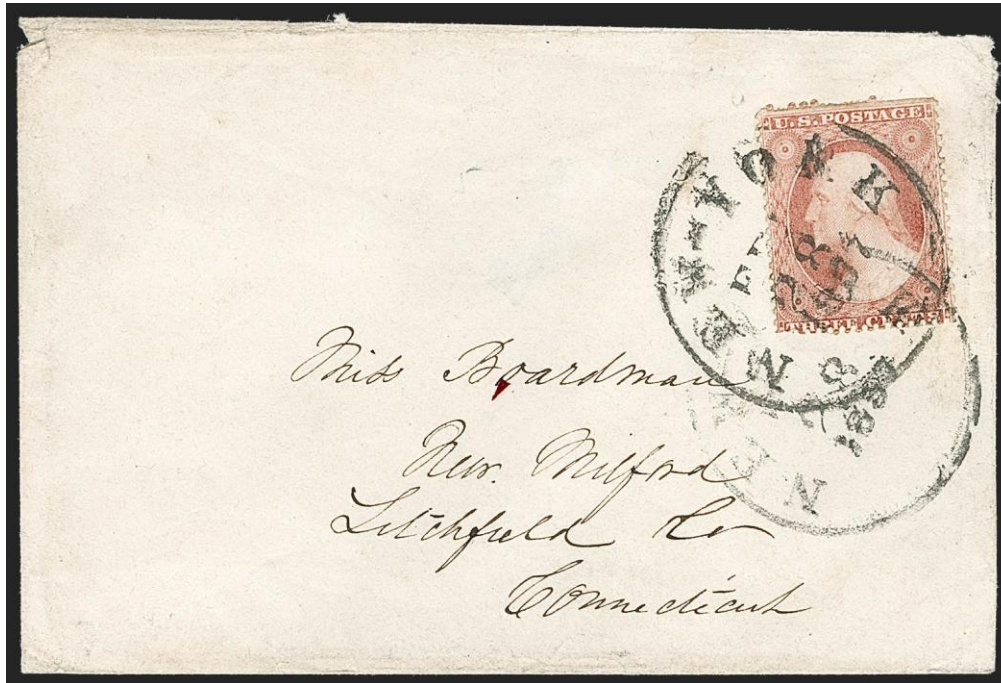 U.S. POSTAGE
THREE CENTS
NEW-YORK
NEW
1857
Miss Boardman
New. Milford
Litchfield Co
Connecticut